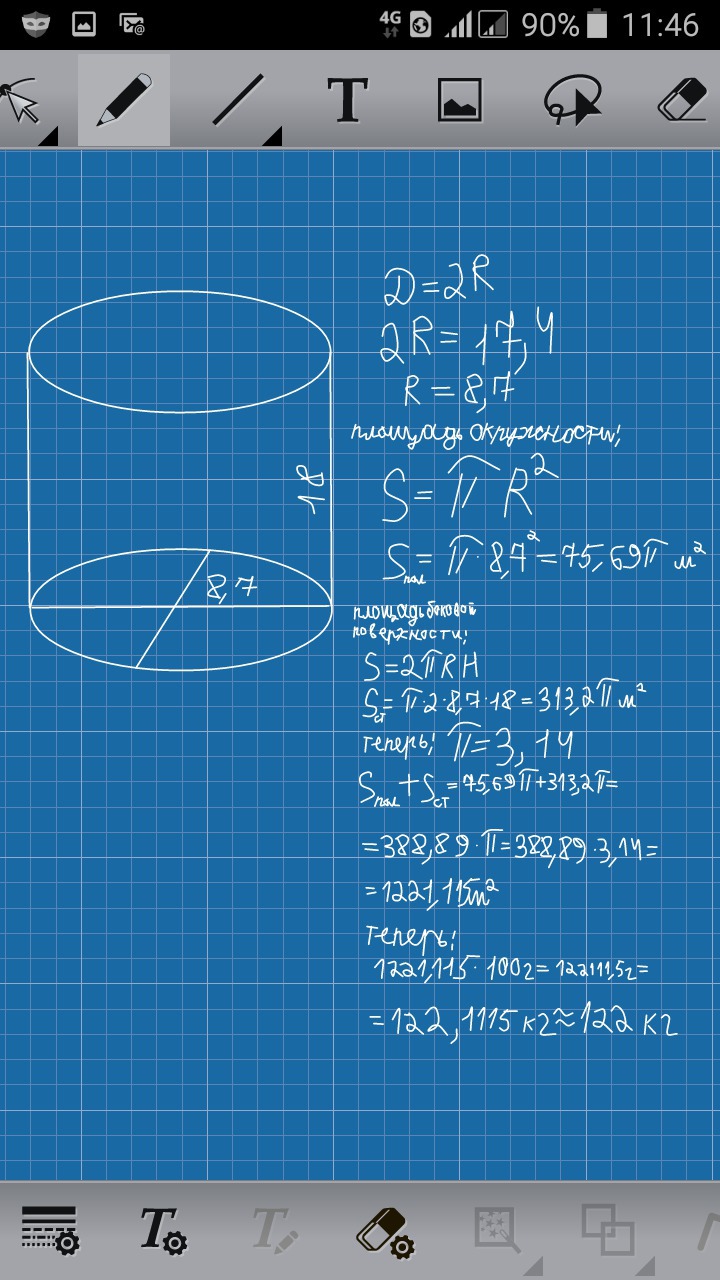 4G 90% 11:46
T
D=2R
2R=17,4
R=8,7
площадь окружности:
S=πR²
Sпол=π·8,7²=75,69π м²
18
8,7
площадь боковой
поверхности:
S=2πRH
Sст=π·2·8,7·18=313,2π м²
теперь: π=3,14
Sпол+Sст=75,69π+313,2π=
=388,89·π=388,89·3,14=
=1221,115м²
теперь:
1221,115·100г=122111,5г=
=122,1115 кг≈122 кг
T T